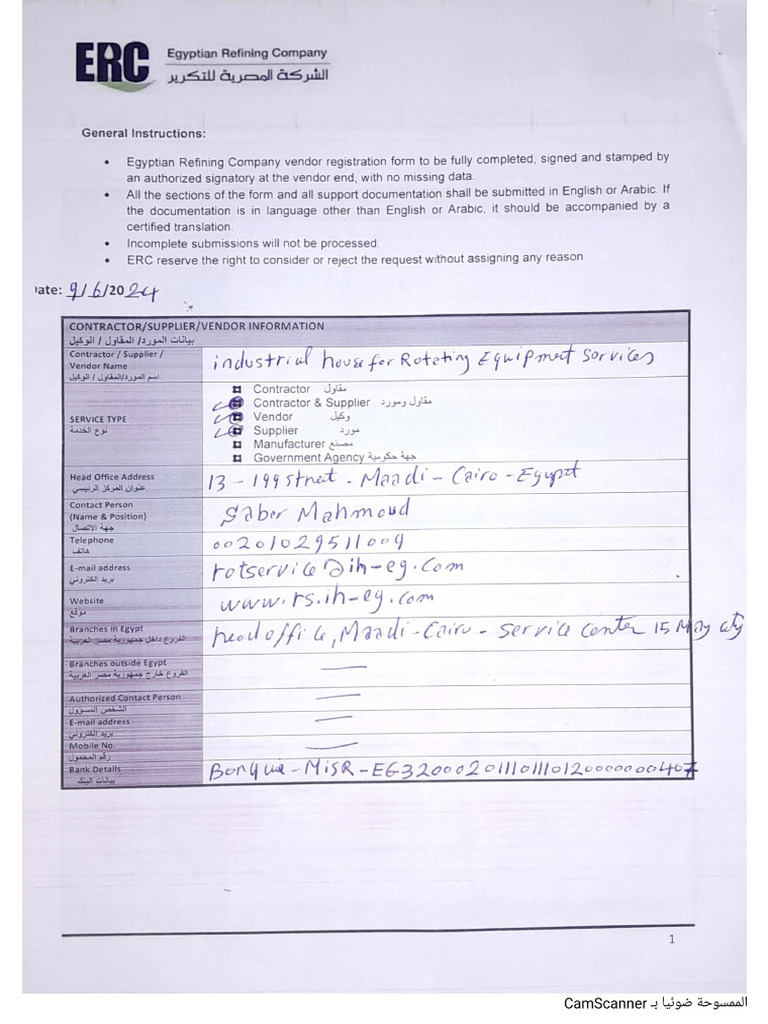 ERC Egyptian Refining Company
الشركة المصرية للتكرير
General Instructions:
• Egyptian Refining Company vendor registration form to be fully completed, signed and stamped by
an authorized signatory at the vendor end, with no missing data.
• All the sections of the form and all support documentation shall be submitted in English or Arabic. If
the documentation is in language other than English or Arabic, it should be accompanied by a
certified translation.
• Incomplete submissions will not be processed.
• ERC reserve the right to consider or reject the request without assigning any reason
ate: 9/6/2024
CONTRACTOR/SUPPLIER/VENDOR INFORMATION
بيانات المورد/ المقاول / الوكيل
Contractor / Supplier /
Vendor Name
اسم المورد/المقاول / الوكيل
industrial house for Rotating Equipment Services
SERVICE TYPE
نوع الخدمة
Contractor مقاول
Contractor & Supplier مقاول ومورد
Vendor وكيل
Supplier مورد
Manufacturer مصنع
Government Agency جهة حكومية
Head Office Address
عنوان المركز الرئيسي
13 - 199 street - Maadi - Cairo - Egypt
Contact Person
(Name & Position)
جهة الاتصال
Saber Mahmoud
Telephone
هاتف
00201029511009
E-mail address
بريد الكتروني
rotservice@ih-eg.com
Website
موقع
www.rs.ih-eg.com
Branches in Egypt
الفروع داخل جمهورية مصر العربية
head office, Maadi - Cairo - Service Center 15 May city
Branches outside Egypt
الفروع خارج جمهورية مصر العربية
Authorized Contact Person
الشخص المسوول
E-mail address
بريد الكتروني
Mobile No.
رقم المحمول
Bank Details
بيانات البنك
Banque - MisR -
1
الممسوحة ضوئيا بـ CamScanner